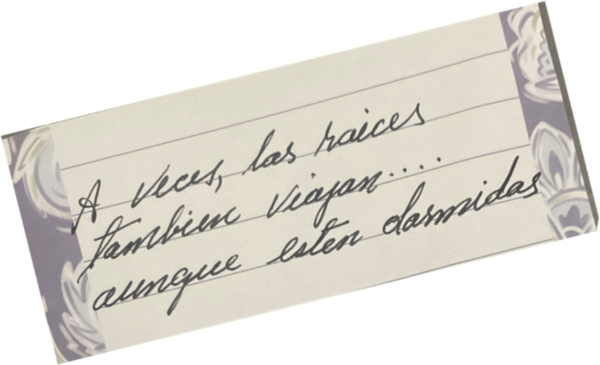 A veces, las raices
tambien viajan....
aunque esten dormidas